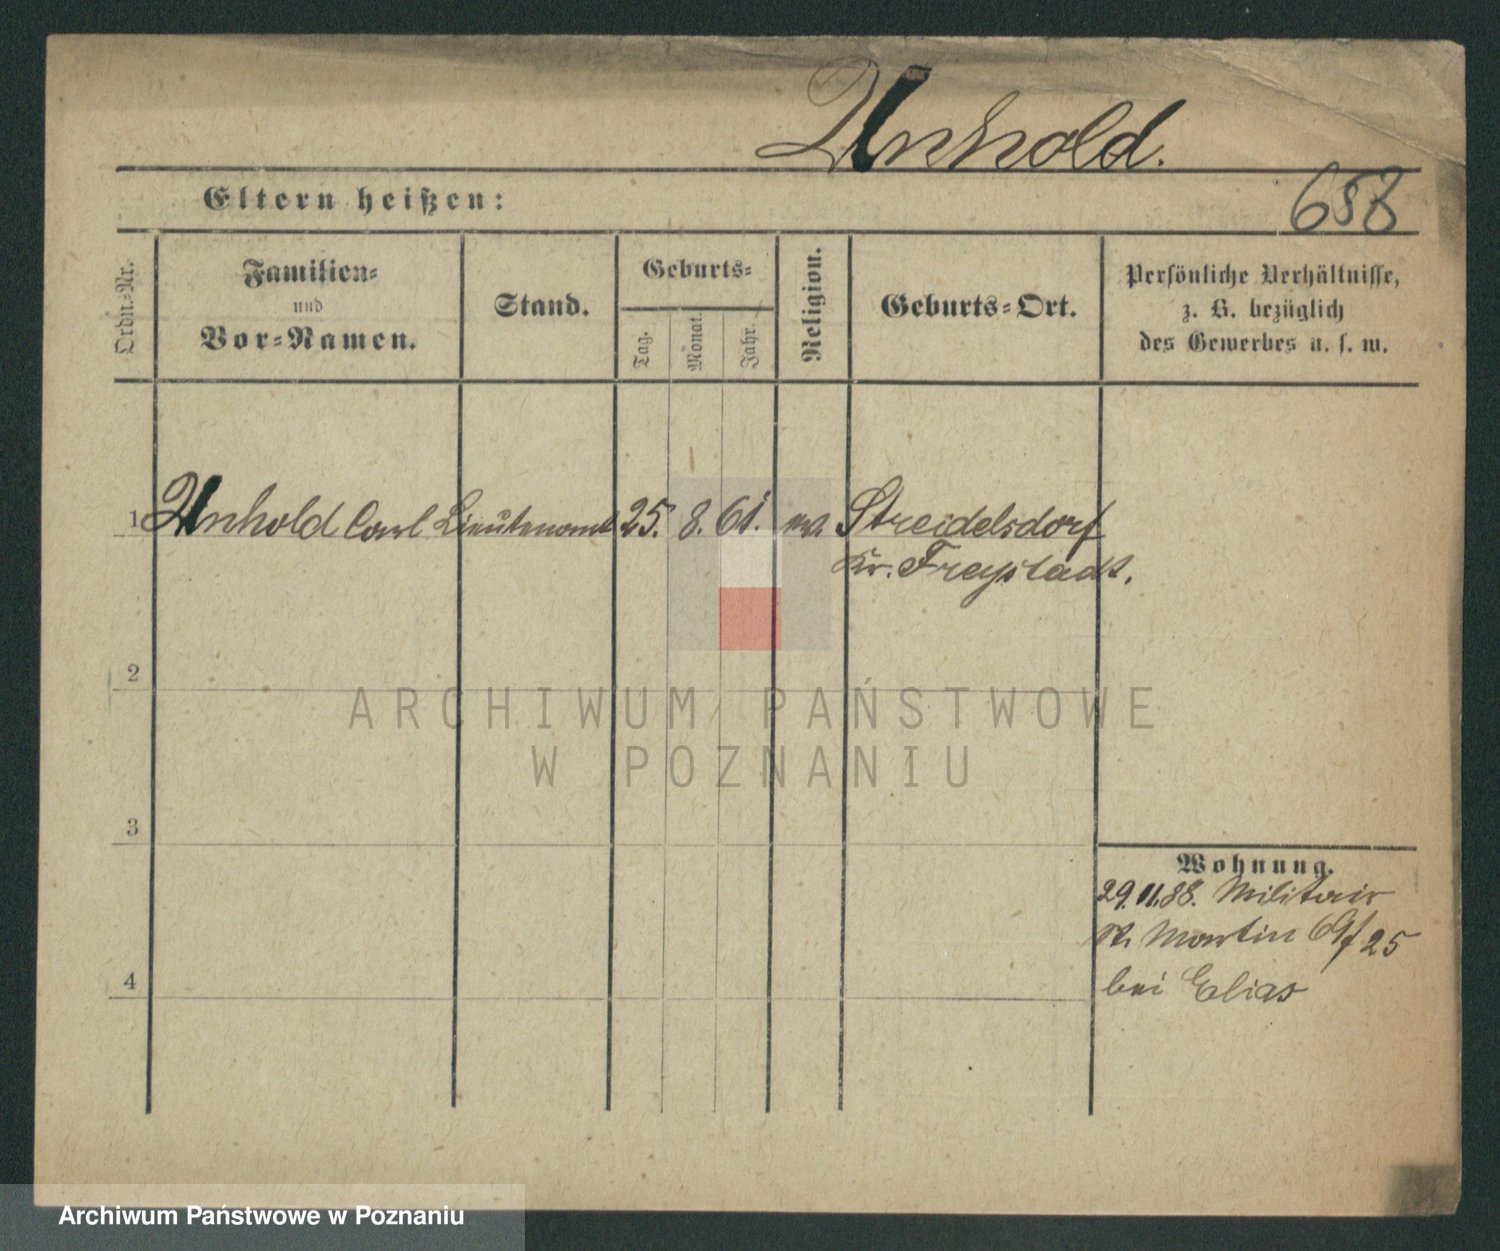 Unhold.
Eltern heißen:
658
Ordn.-Nr.
Familien-
und
Vor-Namen.
Stand.
Geburts-
Tag.
Monat.
Jahr.
Religion.
Geburts-Ort.
Persönliche Verhältnisse,
z. B. bezüglich
des Gewerbes u. s. w.
1 Unhold Carl Lieutenant 25. 8. 61. ev Streidelsdorf
Kr. Freystadt.
2
3
4
Wohnung.
29.11.88. Militair
St. Martin 69/25
bei Elias
ARCHIWUM PAŃSTWOWE
W POZNANIU
Archiwum Państwowe w Poznaniu